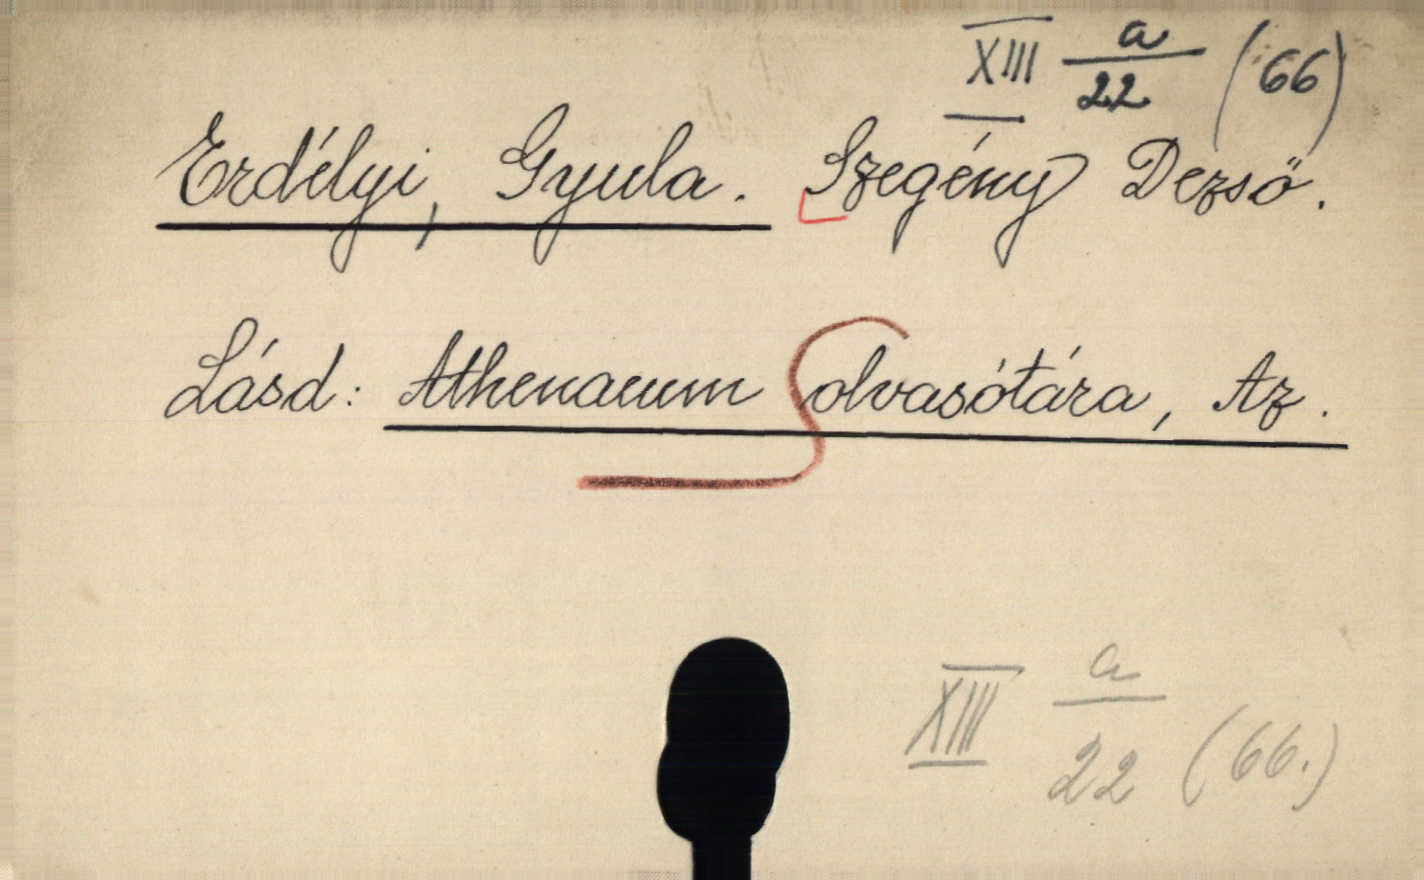 XIII a/22 (66)
Erdélyi, Gyula. Szegény Dezső.
Lásd: Athenaeum olvasótára, Az.
XIII a/22 (66.)